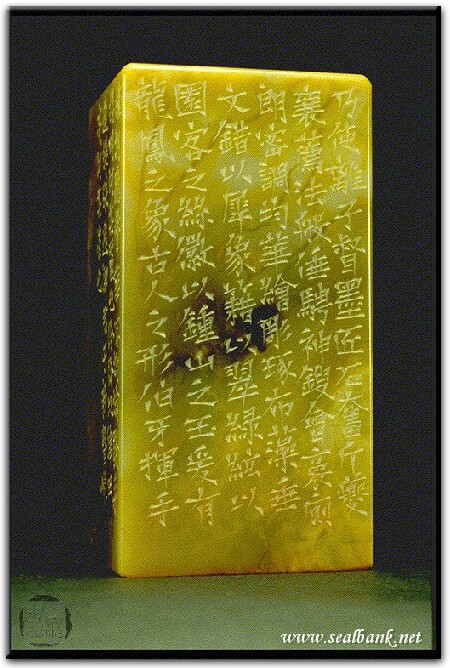 乃使離子督墨匠石奮斤夔
襄薦法般倕騁神鎪會裛廁
朗密調均華繪彫琢布藻垂
文錯以犀象籍以翠綠絃以
園客之絲徽以鍾山之玉爰有
龍鳳之象古人之形伯牙揮手
www.sealbank.net